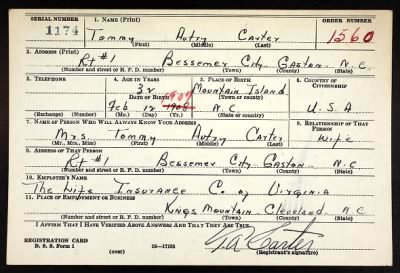 SERIAL NUMBER 1. NAME (Print) ORDER NUMBER
1174 Tommy Autry Carter 1560
(First) (Middle) (Last)
2. ADDRESS (Print)
Rt #1 Bessemer City Gaston N.C.
(Number and street or R. F. D. number) (Town) (County) (State)
3. TELEPHONE 4. AGE IN YEARS 5. PLACE OF BIRTH 6. COUNTRY OF CITIZENSHIP
32 Mountain Island
DATE OF BIRTH 1909 (Town or county)
Feb 12 1908 N.C. U.S.A
(Exchange) (Number) (Mo.) (Day) (Yr.) (State or country)
7. NAME OF PERSON WHO WILL ALWAYS KNOW YOUR ADDRESS 8. RELATIONSHIP OF THAT PERSON
Mrs. Tommy Autry Carter Wife
(Mr., Mrs., Miss) (First) (Middle) (Last)
9. ADDRESS OF THAT PERSON
Rt #1 Bessemer City Gaston N.C
(Number and street or R. F. D. number) (Town) (County) (State)
10. EMPLOYER'S NAME
The Life Insurance Co of Virginia
11. PLACE OF EMPLOYMENT OR BUSINESS
Kings Mountain Cleveland N.C
(Number and street or R. F. D. number) (Town) (County) (State)
I AFFIRM THAT I HAVE VERIFIED ABOVE ANSWERS AND THAT THEY ARE TRUE.
REGISTRATION CARD
D. S. S. Form 1 (over) 16—17105 T.A. Carter
(Registrant's signature)